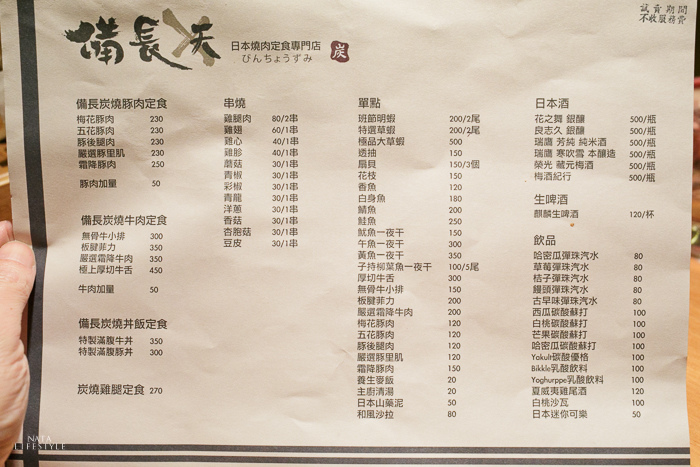 試賣期間
不收服務費
備長天
日本燒肉定食專門店
びんちょうずみ
炭
備長炭燒豚肉定食
梅花豚肉 230
五花豚肉 230
豚後腿肉 230
嚴選豚里肌 230
霜降豚肉 250
豚肉加量 50
備長炭燒牛肉定食
無骨牛小排 300
板腱菲力 350
嚴選霜降牛肉 350
極上厚切牛舌 450
牛肉加量 50
備長炭燒丼飯定食
特製滿腹牛丼 350
特製滿腹豚丼 300
炭燒雞腿定食 270
串燒
雞腿肉 80/2串
雞翅 60/1串
雞心 40/1串
雞胗 40/1串
蘑菇 30/1串
青椒 30/1串
彩椒 30/1串
青龍 30/1串
洋蔥 30/1串
香菇 30/1串
杏胞菇 30/1串
豆皮 30/1串
單點
班節明蝦 200/2尾
特選草蝦 200/2尾
極品大草蝦 500
透抽 150
扇貝 150/3個
花枝 150
香魚 120
白身魚 180
鯖魚 200
鮭魚 250
魷魚一夜干 150
午魚一夜干 300
黃魚一夜干 350
子持柳葉魚一夜干 100/5尾
厚切牛舌 300
無骨牛小排 150
板腱菲力 200
嚴選霜降牛肉 200
梅花豚肉 120
五花豚肉 120
豚後腿肉 120
嚴選豚里肌 120
霜降豚肉 150
養生麥飯 20
主廚清湯 20
日本山藥泥 50
和風沙拉 80
日本酒
花之舞 銀釀 500/瓶
良志久 銀釀 500/瓶
瑞鷹 芳純 純米酒 500/瓶
瑞鷹 寒吹雪 本釀造 500/瓶
榮光 藏元梅酒 500/瓶
梅酒紀行 500/瓶
生啤酒
麒麟生啤酒 120/杯
飲品
哈密瓜彈珠汽水 80
草莓彈珠汽水 80
桔子彈珠汽水 80
饅頭彈珠汽水 80
古早味彈珠汽水 80
西瓜碳酸蘇打 100
白桃碳酸蘇打 100
芒果碳酸蘇打 100
哈密瓜碳酸蘇打 100
Yakult碳酸優格 100
Bikkle乳酸飲料 100
Yoghurppe乳酸飲料 100
夏威夷雞尾酒 120
白桃沙瓦 100
日本迷你可樂 50
NATA
LIFESTYLE